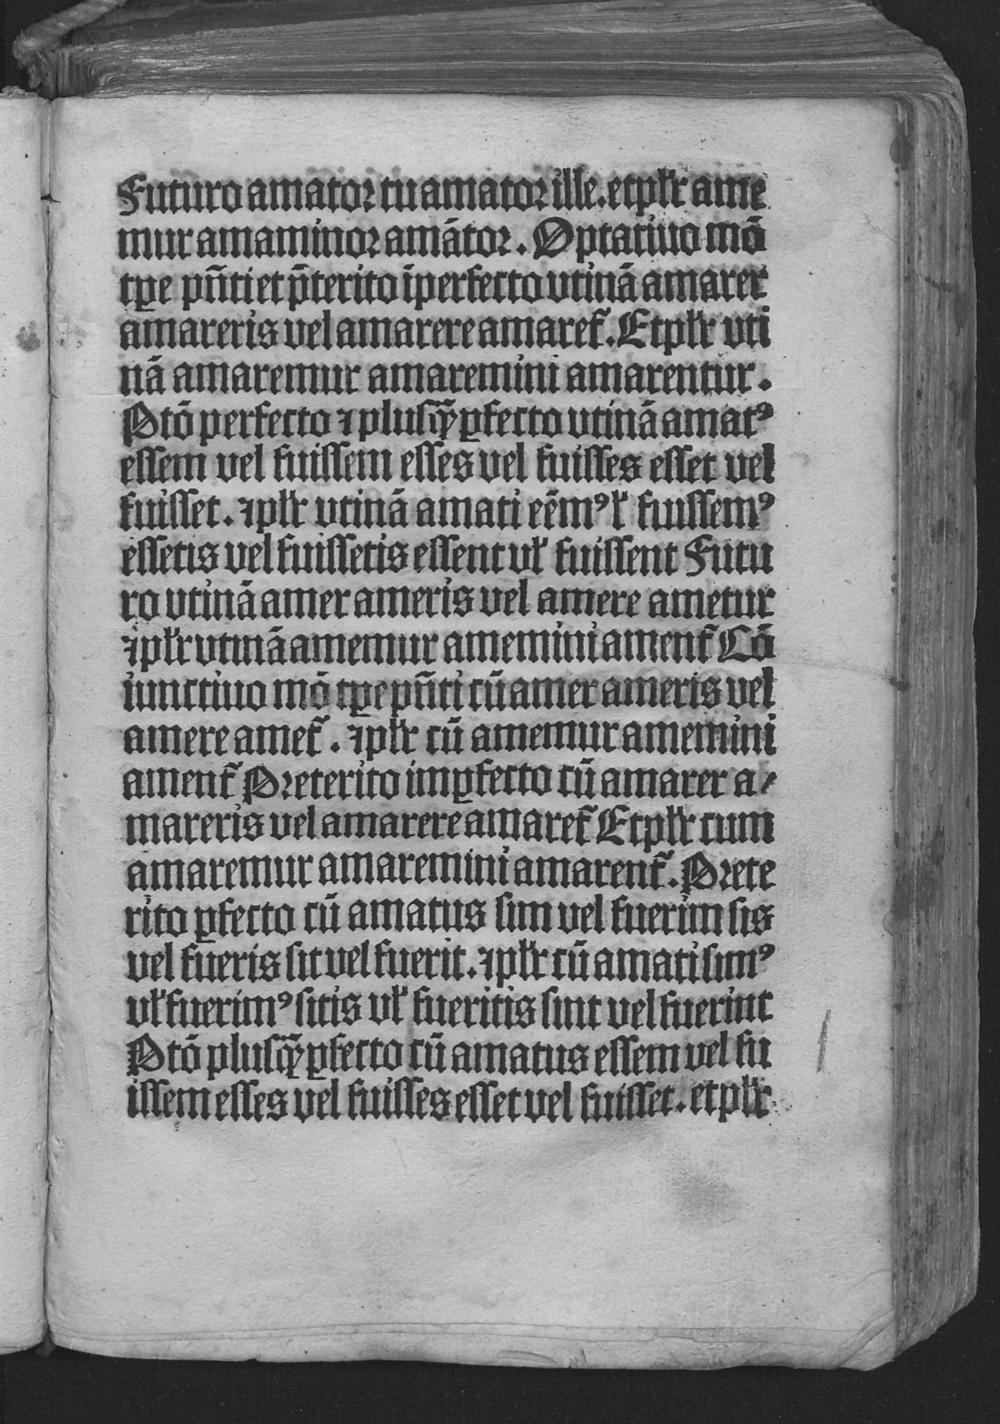 Futuro amator tu amator ille. et płr ame
mur amaminor amātor. Optatiuo mō
tꝑe pñti et p̄terito īperfecto vtinā amarer
amareris vel amarere amaret᷑. Et płr vti
nā amaremur amaremini amarentur.
Ptō perfecto ⁊ plusq̄ꝑfecto vtinā amatꝰ
essem vel fuissem esses vel fuisses esset vel
fuisset. ⁊ płr vtinā amati eēmꝰ ł fuissemꝰ
essetis vel fuissetis essent vł fuissent Futu
ro vtinā amer ameris vel amere ametur
⁊ płr vtinā amemur amemini ament᷑ Cō
iunctiuo mō tꝑe pñti cū amer ameris vel
amere amet᷑. ⁊ płr cū amemur amemini
ament᷑ Preterito imꝑfecto cū amarer a⸗
mareris vel amarere amaret᷑ Et płr cum
amaremur amaremini amarent᷑. Prete
rito ꝑfecto cū amatus sim vel fuerim sis
vel fueris sit vel fuerit. ⁊ płr cū amati simꝰ
vł fuerimꝰ sitis vł fueritis sint vel fuerint
Ptō plusq̄ꝑfecto cū amatus essem vel fu
issem esses vel fuisses esset vel fuisset. et płr